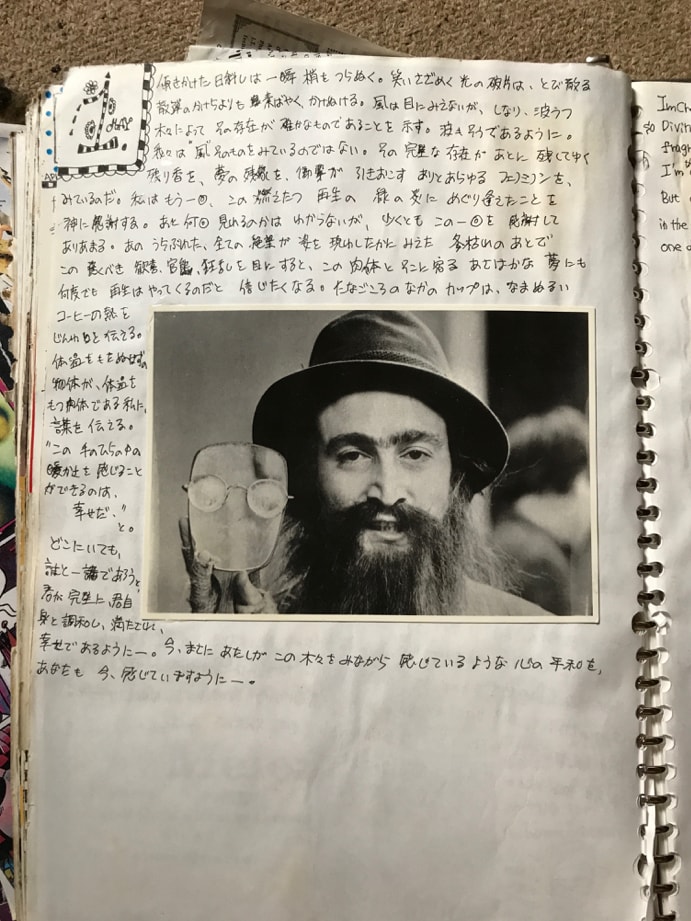 傾きかけた日射しは一瞬 梢をつらぬく。笑いさざめく 光の破片は、とび散る
散弾のかけらよりも 素ばやく、かけぬける。風は目にみえないが、しなり、波うつ
木々によって その存在が 確かなものであることを 示す。波もそうであるように。
我々は "風"そのものをみているのではない。その 完璧な 存在が あとに 残してゆく
残り香を、夢の残骸を、衝撃が 引きおこす ありとあらゆる フェノミノンを、
みているのだ。私は もう一回、この 燃えたつ 再生の 緑の炎に めぐり逢えたことを
神に感謝する。あと何回 見れるのかは わからないが、ゆくとも この一回を 感謝して
ありあまる。あの うちぶれた、全ての 絶望が 姿を 現わしたかに みえた 冬枯れの あとで
この 驚くべき 歓喜、官能、狂乱を目にすると、この 肉体と そこに宿る あてはかな 夢にも
何度でも 再生は やってくるのだと 信じたくなる。たなごころのなかの カップは、なまぬるい
コーヒーの熱を
じんわりと伝える。
体温をもたぬはずの
物体が、体温を
もつ肉体である 私に、
言葉を 伝える。
"この 手のひらの中の
暖かさを 感じること
ができるのは、
幸せだ、"
と。
どこにいても、
誰と一緒であろうと、
君が 完璧に 君自
身と調和し、満たされ、
幸せであるようにー。今、まさに あたしが この 木々をみながら 感じているような 心の 平和を、
あなたも 今、感じていますようにー。
I'm
Divin
I'm
But
in the
one o